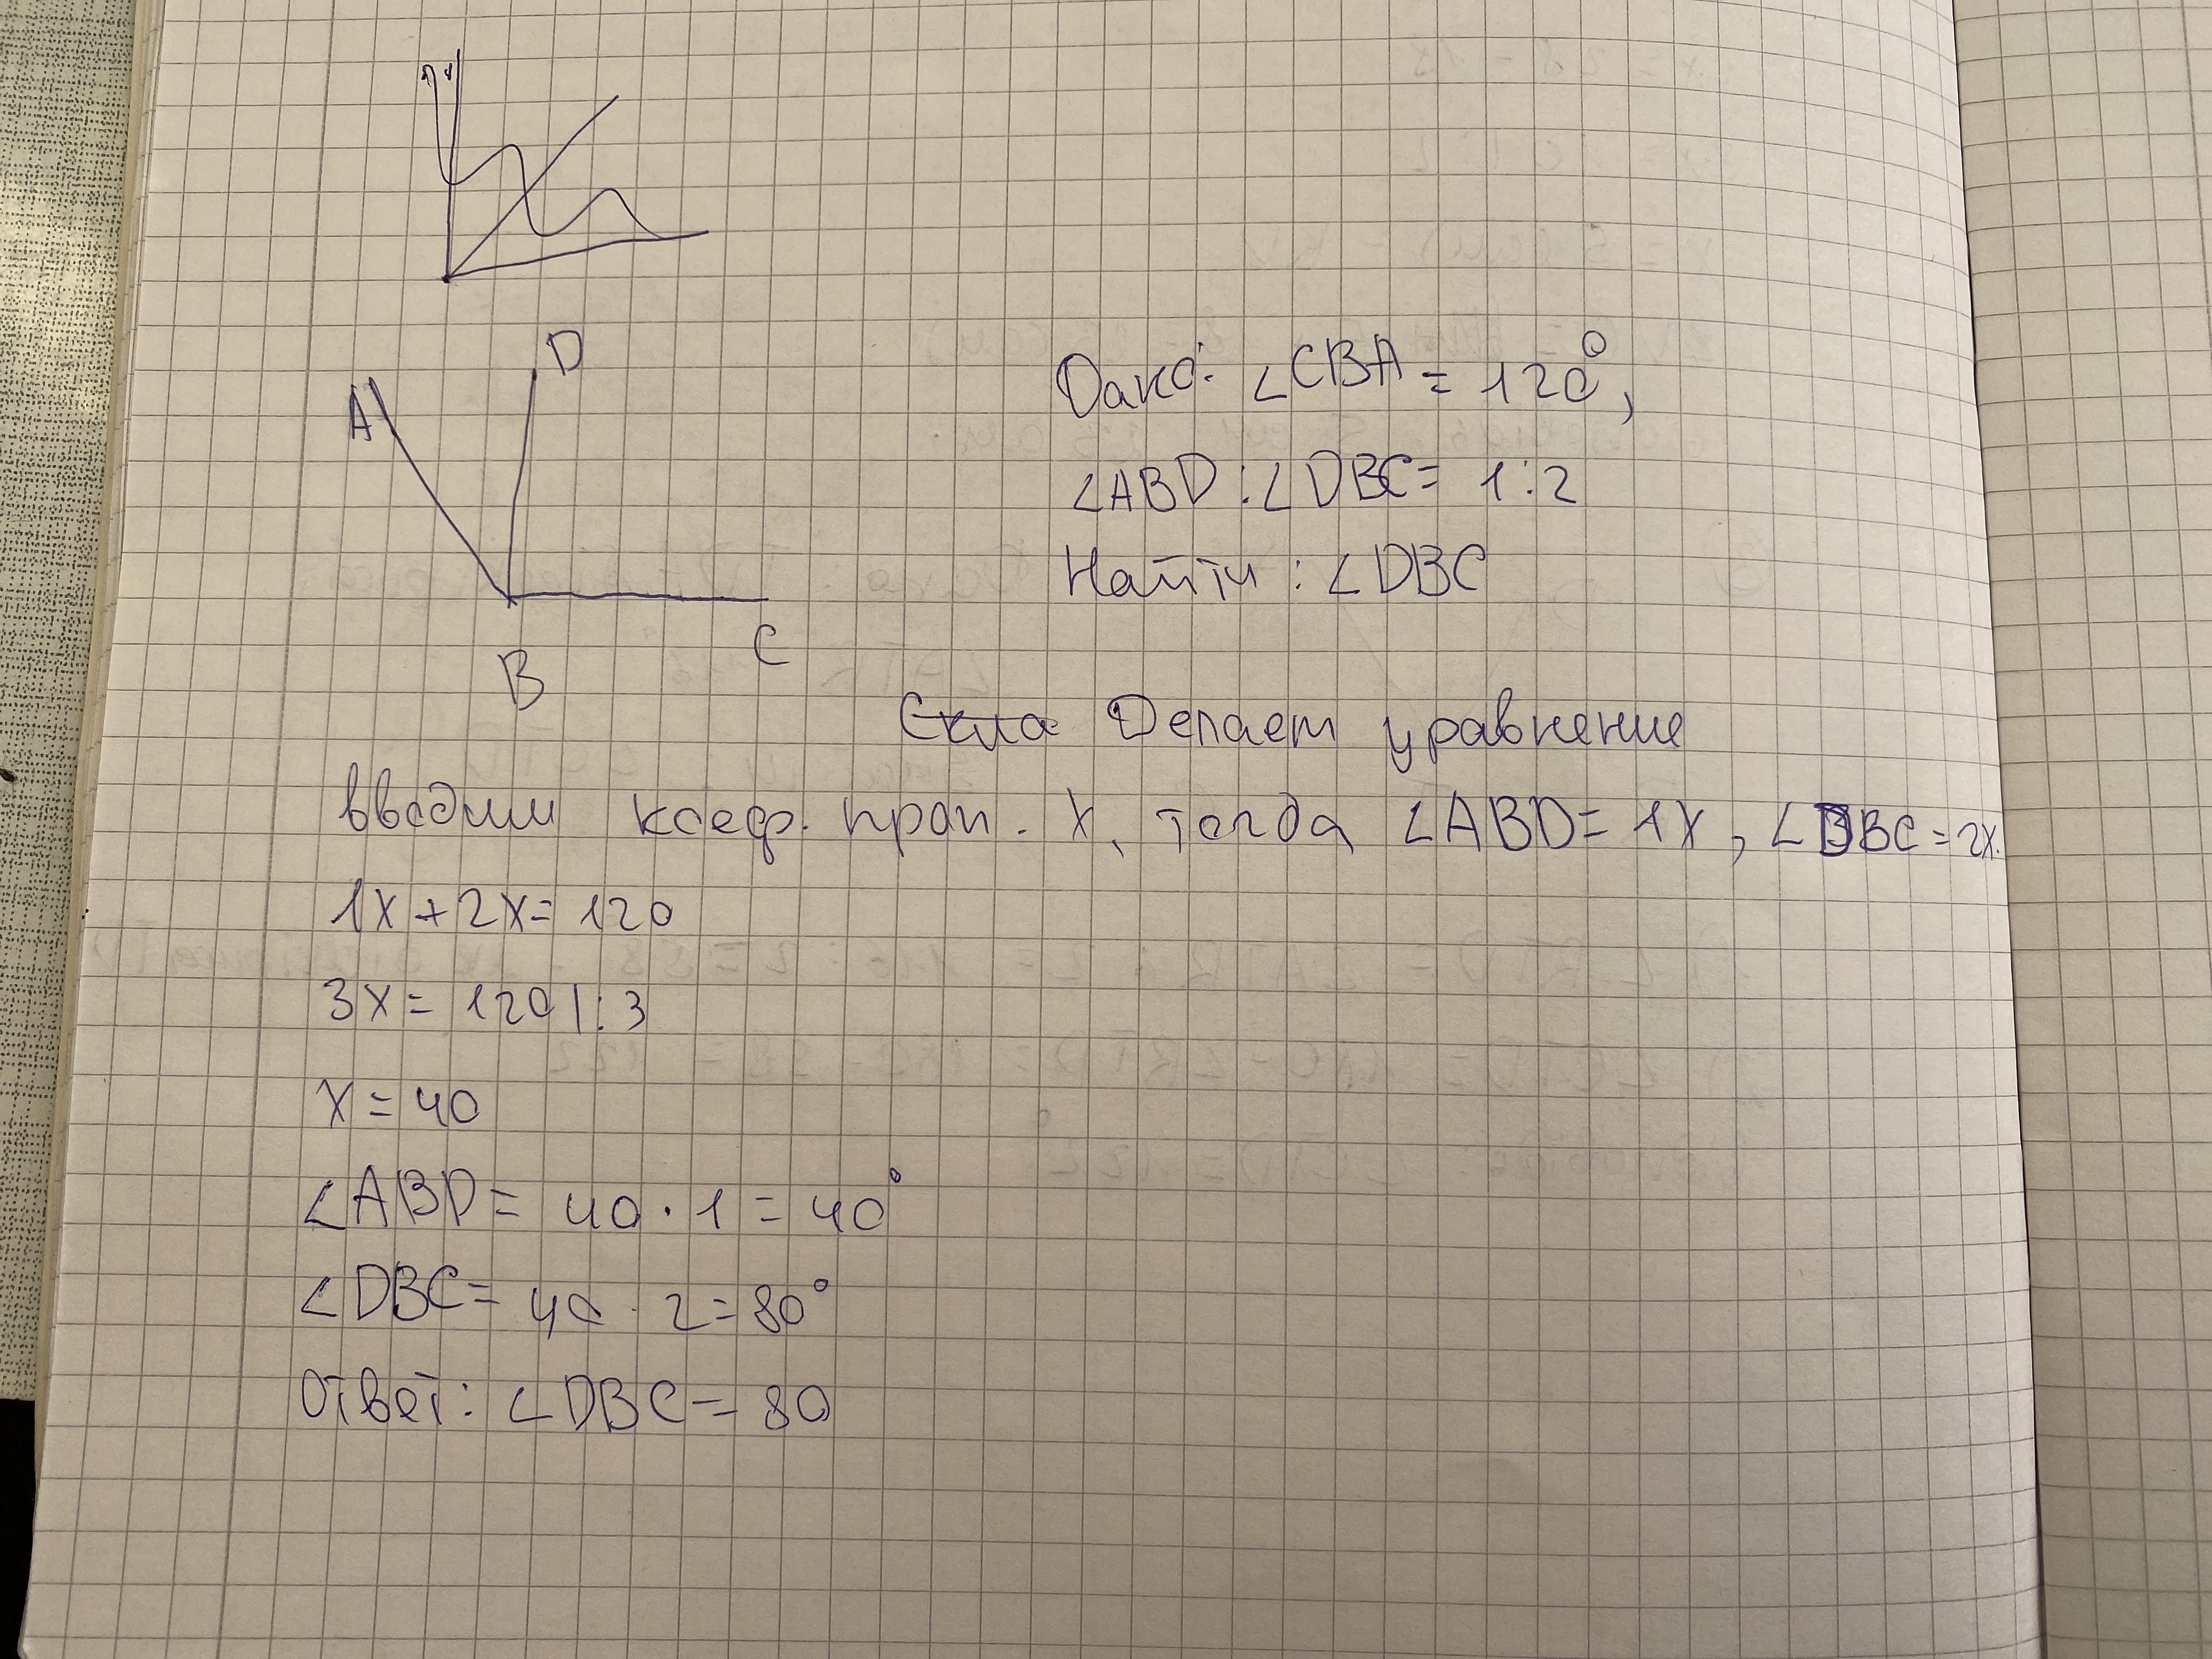 A
D
B
C
Дано: ∠CBA = 120°,
∠ABD : ∠DBC = 1:2
Найти : ∠DBC
Делаем уравнение
вводим коеф. проп. X, тогда ∠ABD = 1X, ∠DBC = 2X.
1X + 2X = 120
3X = 120 |:3
X = 40
∠ABD = 40 · 1 = 40°
∠DBC = 40 · 2 = 80°
Ответ: ∠DBC = 80